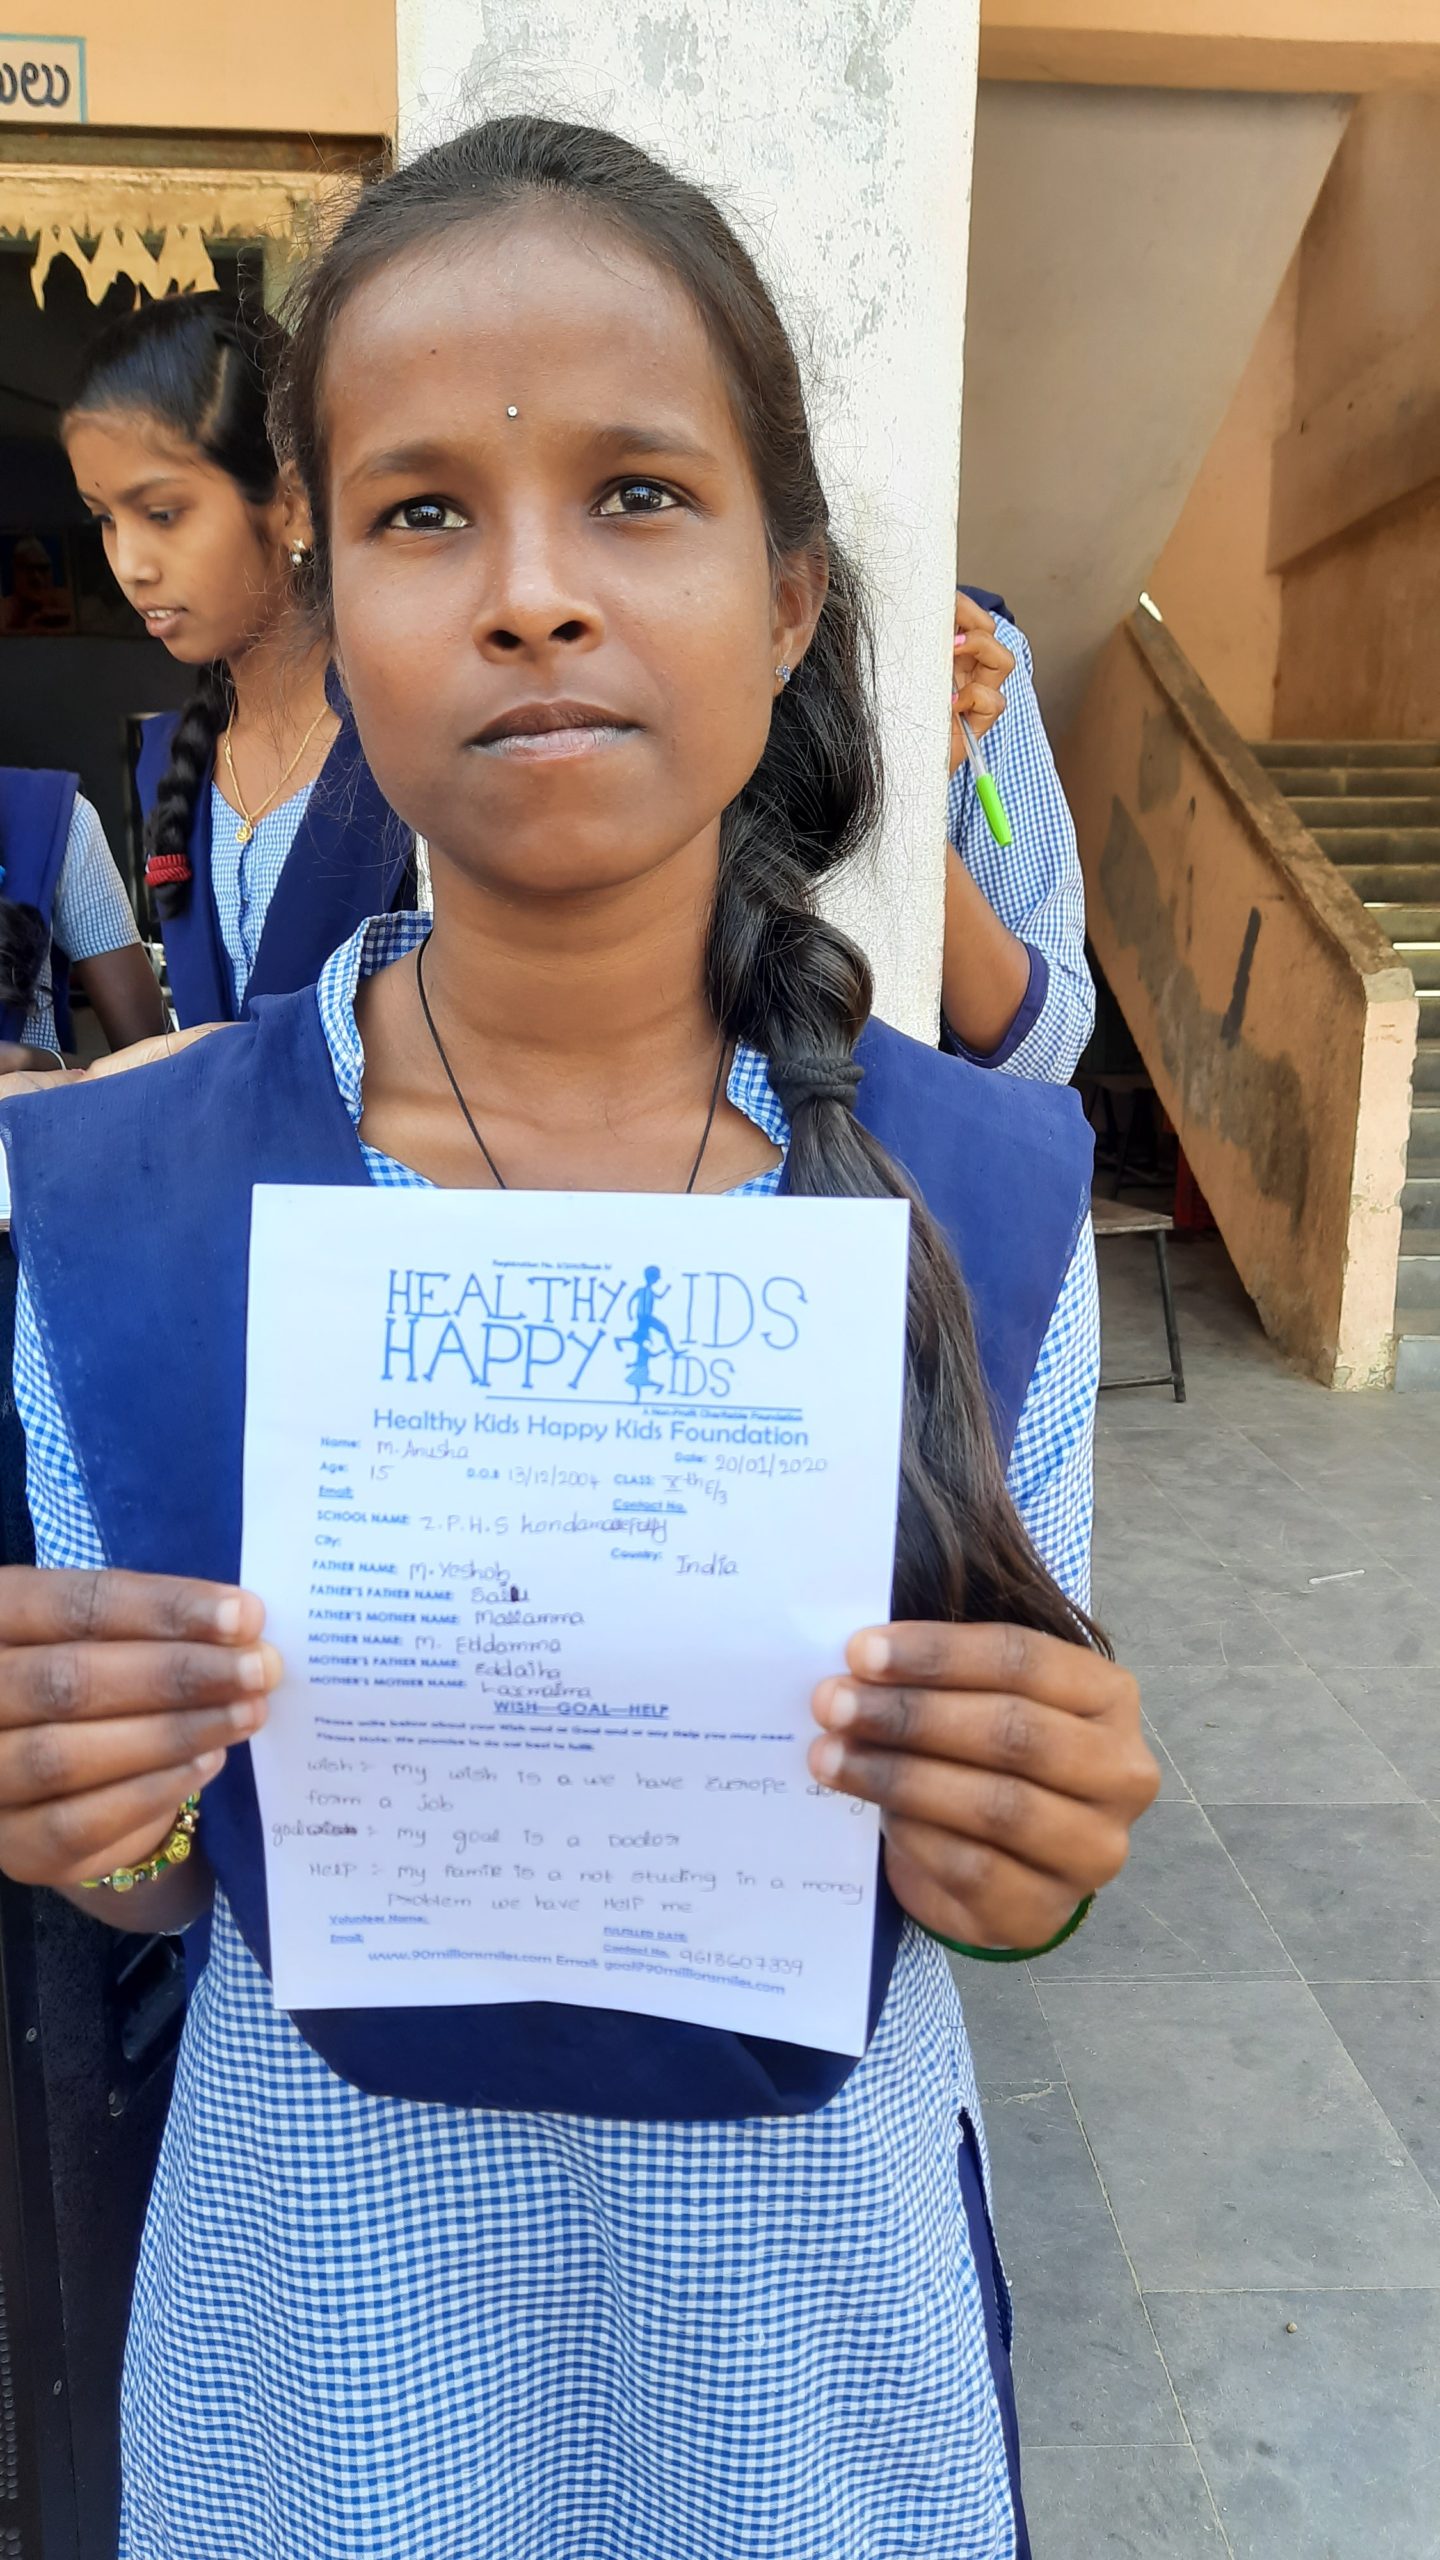 ములు
HEALTHY KIDS
HAPPY KIDS
A Non-Profit Charitable Foundation
Healthy Kids Happy Kids Foundation
Name: M. Anusha Date: 20/01/2020
Age: 15 D.O.B 13/12/2004 CLASS: Xth E/3
Email: Contact No.
SCHOOL NAME: Z.P.H.S
City: Country: India
FATHER NAME: M. Yeshob
FATHER'S FATHER NAME:
FATHER'S MOTHER NAME: Mallamma
MOTHER NAME: M. Eddamma
MOTHER'S FATHER NAME: Eddaiha
MOTHER'S MOTHER NAME:
WISH—GOAL—HELP
Please write below about your Wish and or Goal and or any Help you may need:
Please Note: We promise to do our best to fulfil.
wish :- my wish is a we have Europe
form a job
goal :- my goal is a Doctor
HELP :- my famile is a not studing in a money
problem we have HELP me
Volunteer Name: FULFILLED DATE:
Email: Contact No. 9618607339
www.90millionsmiles.com Email: goal@90millionsmiles.com